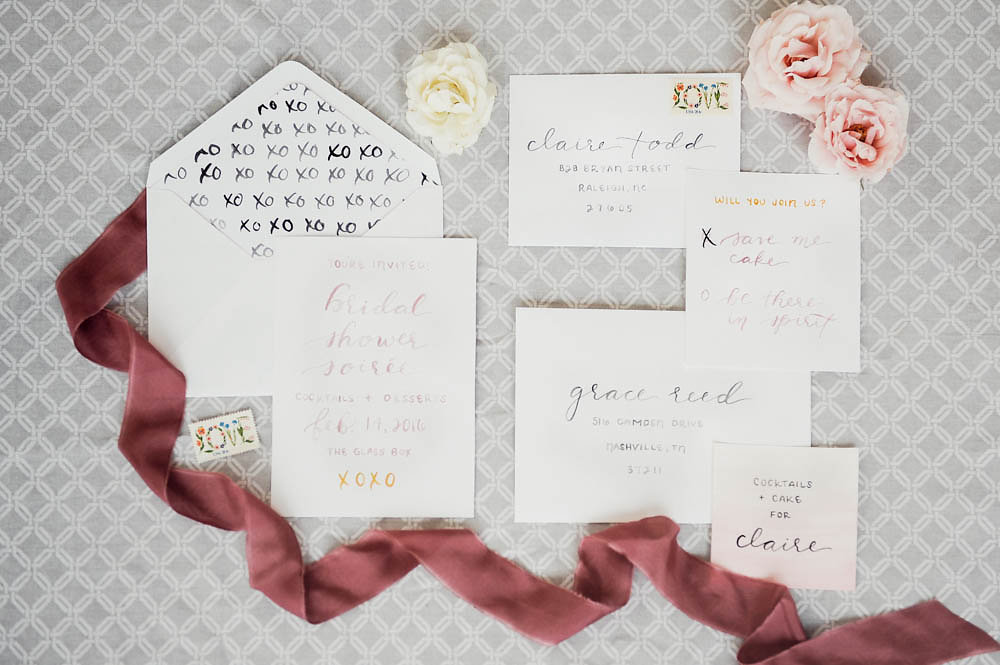 xo xo
xo xo xo xo
xo xo xo xo xo
xo xo xo xo xo xo
xo xo xo xo xo
xo xo xo xo
xo
YOU'RE INVITED!
bridal
shower
soirée
COCKTAILS + DESSERTS
feb. 14, 2016
THE GLASS BOX
XOXO
LOVE
LOVE
claire todd
828 BRYAN STREET
RALEIGH, NC
27605
WILL YOU JOIN US?
X save me
cake
O be there
in spirit
grace reed
516 CAMDEN DRIVE
NASHVILLE, TN
37211
COCKTAILS
+ CAKE
FOR
claire